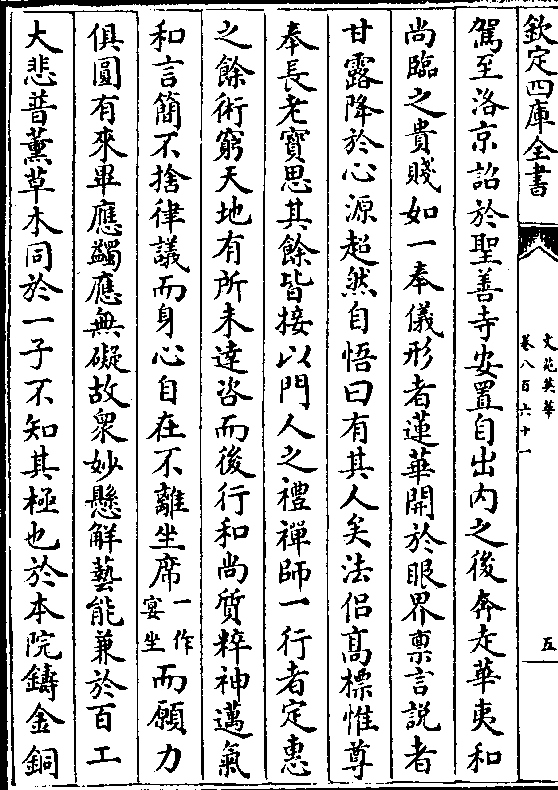 欽定四庫全書
文苑英華
卷八百六十一
五
駕至洛京詔於聖善寺安置自出內之後奔走華夷和
尚臨之貴賤如一奉儀形者蓮華開於眼界禀言説者
甘露降於心源超然自悟曰有其人矣法侣髙標惟尊
奉長老寳思其餘皆接以門人之禮禪師一行者定惠
之餘術窮天地有所未達咨而後行和尚質粹神邁氣
和言簡不捨律議而身心自在不離坐席一作宴坐而願力
俱圓有來畢應蠲應無礙故衆妙懸解藝能兼於百工
大悲普薰草木同於一子不知其極也於本院鑄金銅